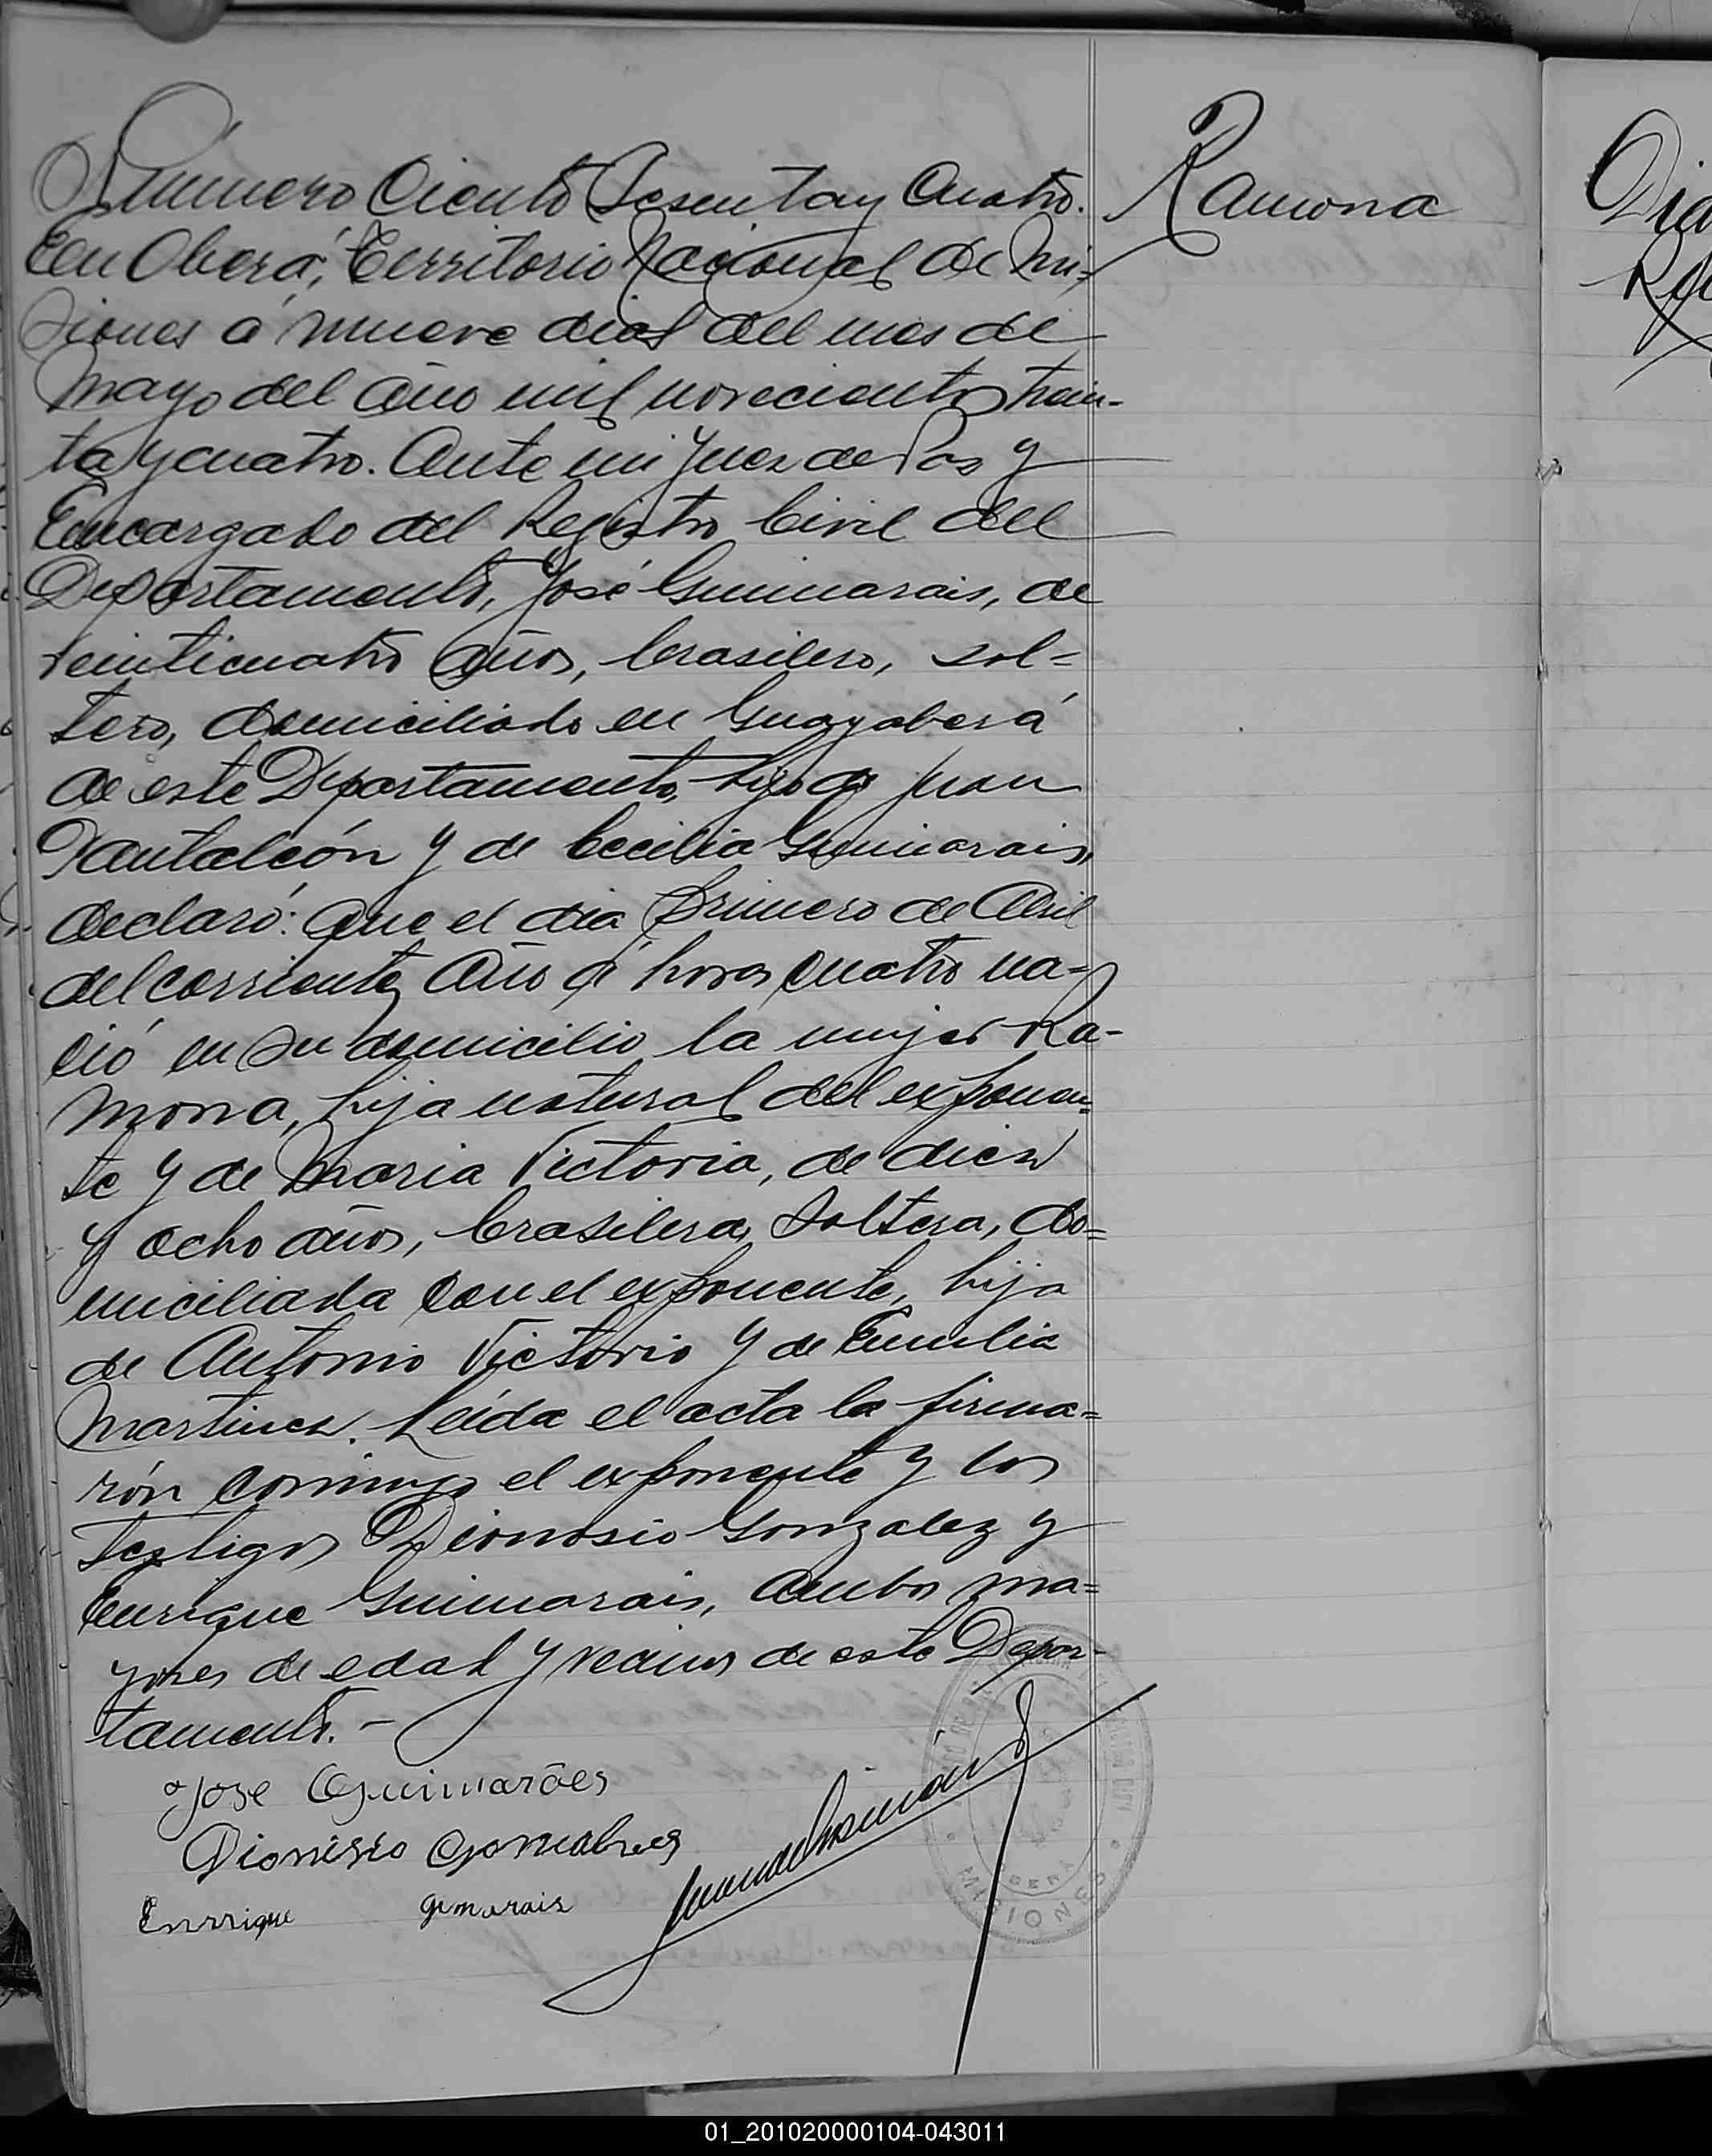 Número Ciento Sesenta y Cuatro.
Ramona
En Oberá, Territorio Nacional de Mi-
siones á nueve dias del mes de
Mayo del año mil novecientos trein-
ta y cuatro. Ante mi Juez de Paz y
Encargado del Registro Civil del
Departamento, José Guimarais, de
veinticuatro años, brasilero, sol=
tero, domiciliado en Guayaberá
de este Departamento, hijo de Juan
Pantaleón y de Cecilia Guimarais,
declaró: Que el dia primero de Abril
del corriente año á horas cuatro na-
ció en su domicilio la mujer Ra-
mona, hija natural del exponen=
te y de Maria Victoria, de diez
y ocho años, brasilera, soltera, do=
miciliada con el exponente, hija
de Antonio Victorio y de Emilia
Martinez. Leida el acta la firma=
rón conmigo el exponente y los
testigos Dionosio Gonzalez y
Enrique Guimarais, ambos ma=
yores de edad y vecinos de este Depar-
tamento.-
Jose Guimarães
Dionisio Gonsalves
Enrrique Gimarais
MISIONES
01_201020000104-043011